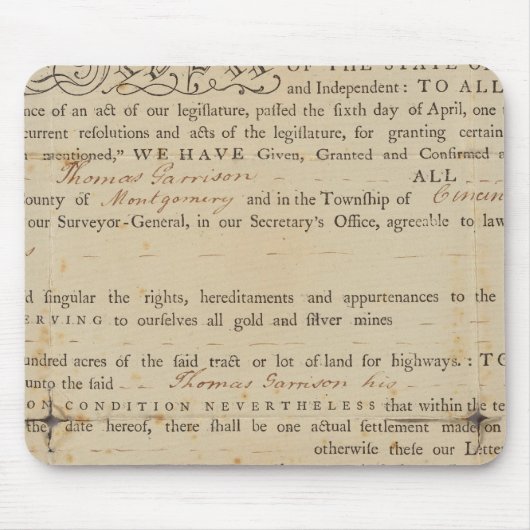 OF THE STATE OF
and Independent: TO ALL
nce of an act of our legiſlature, paſſed the ſixth day of April, one
current reſolutions and acts of the legiſlature, for granting certain
mentioned," WE HAVE Given, Granted and Confirmed a
Thomas Garrison ALL
ounty of Montgomery and in the Township of Cincin
our Surveyor-General, in our Secretary's Office, agreeable to law
s
d ſingular the rights, hereditaments and appurtenances to the
ERVING to ourſelves all gold and ſilver mines
undred acres of the ſaid tract or lot of land for highways. : TO
unto the ſaid Thomas Garrison his
ON CONDITION NEVERTHELESS that within the te
the date hereof, there ſhall be one actual ſettlement made on
otherwiſe theſe our Letter